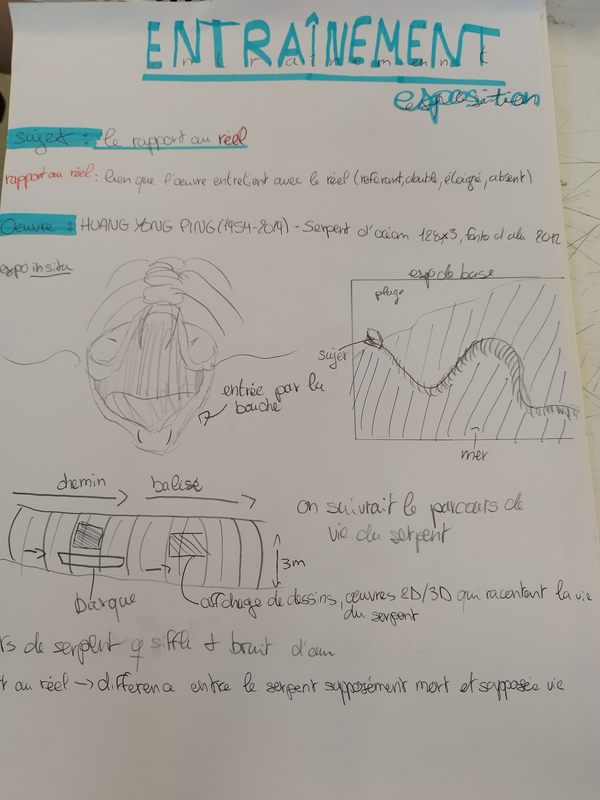 ENTRAÎNEMENT
exposition
sujet : le rapport au reel
rapport au réel : lien que l'œuvre entretient avec le réel (referant, double, éloigné, absent)
Oeuvre : HUANG YONG PING (1954-2019) - Serpent d'océan 128x3, fonte d'alu 2012
expo insitu
esp de base
plage
sujet
entrée par la
bouche
mer
chemin balisé
on suivrait le parcours de
vie du serpent
3m
barque
affichage de dessins, œuvres 2D/3D qui racontent la vie
du serpent
de serpent q siffle + bruit d'eau
au réel → difference entre le serpent supposément mort et sa supposée vie